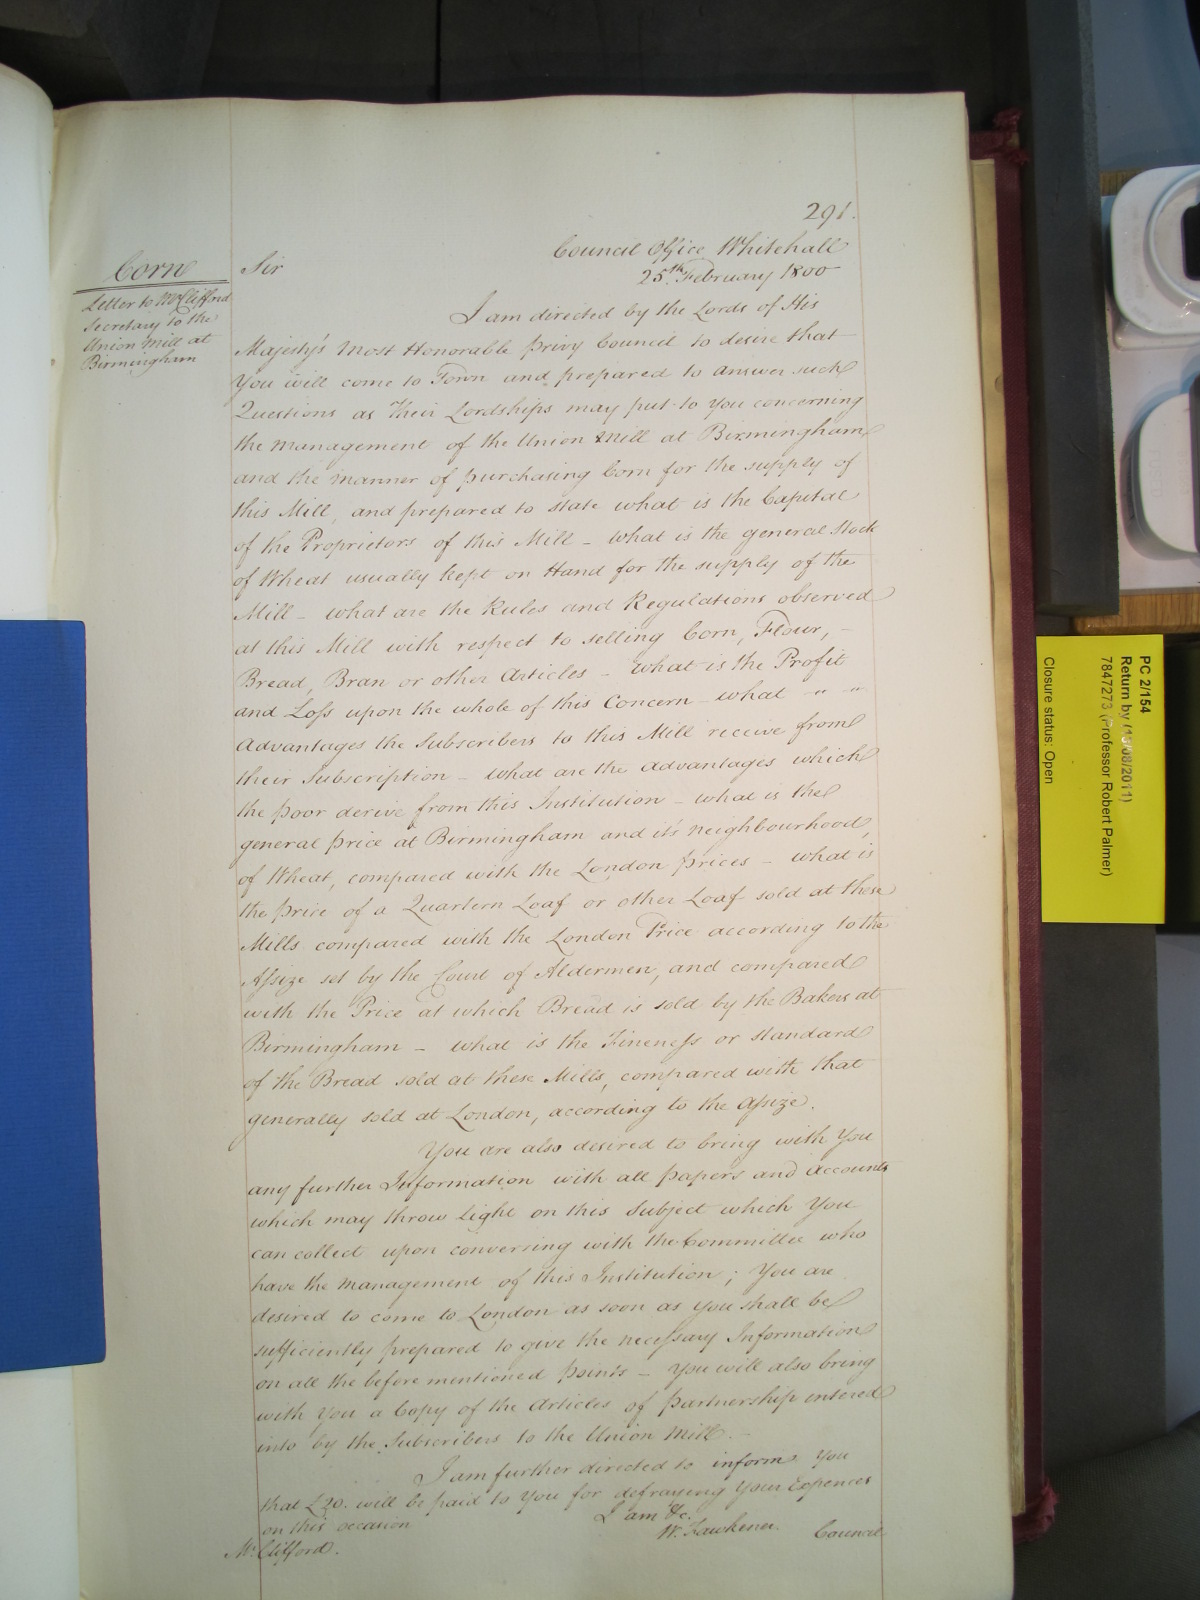 291.
Council Office Whitehall
25th. February 1800
Corn
Letter to Mr Clifford
Secretary to the
Union Mill at
Birmingham
Sir
I am directed by the Lords of His
Majesty's Most Honorable Privy Council to desire that
You will come to Town and prepared to answer such
Questions as their Lordships may put to You concerning
the management of the Union Mill at Birmingham
and the manner of purchasing Corn for the supply of
this Mill, and prepared to state what is the Capital
of the Proprietors of this Mill - What is the general Stock
of Wheat usually kept on Hand for the supply of the
Mill - what are the Rules and Regulations observed
at this Mill with respect to selling Corn, Flour, -
Bread, Bran or other Articles - What is the Profit
and Loss upon the whole of this Concern - what - " - "
Advantages the Subscribers to this Mill receive from
their Subscription - what are the Advantages which
the poor derive from this Institution - what is the
general price at Birmingham and it's neighbourhood,
of Wheat, compared with the London prices - what is
the price of a Quartern Loaf or other Loaf sold at these
Mills compared with the London Price according to the
Assize set by the Court of Aldermen, and compared
with the Price at which Bread is sold by the Bakers at
Birmingham - what is the Fineness or standard
of the Bread sold at these Mills, compared with that
generally sold at London, according to the Assize.
You are also desired to bring with You
any further Information with all papers and Accounts
which may throw light on this Subject which You
can collect upon conversing with the Committee who
have the management of this Institution; You are
desired to come to London as soon as you shall be
sufficiently prepared to give the necessary Information
on all the before mentioned points - You will also bring
with You a Copy of the Articles of partnership entered
into by the Subscribers to the Union Mill. -
I am further directed to inform You
that £20. will be paid to You for defraying Your Expences
on this occasion
I am &c.
W. Fawkener.
Council
Mr. Clifford.
PC 2/154
Return by (13/08/2011)
7847273 (Professor Robert Palmer)
Closure status: Open